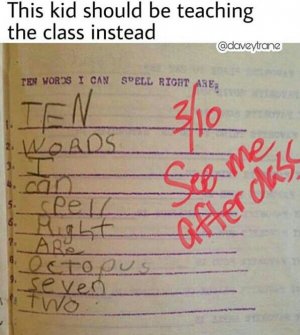 This kid should be teaching
the class instead
@daveytrane
TEN WORDS I CAN SPELL RIGHT ARE:
3/10
1. TEN
2. WORDS
3. I
4. can
5. spell
6. Right
7. ARe
8. Octopus
9. seven
TWO
See me
after class